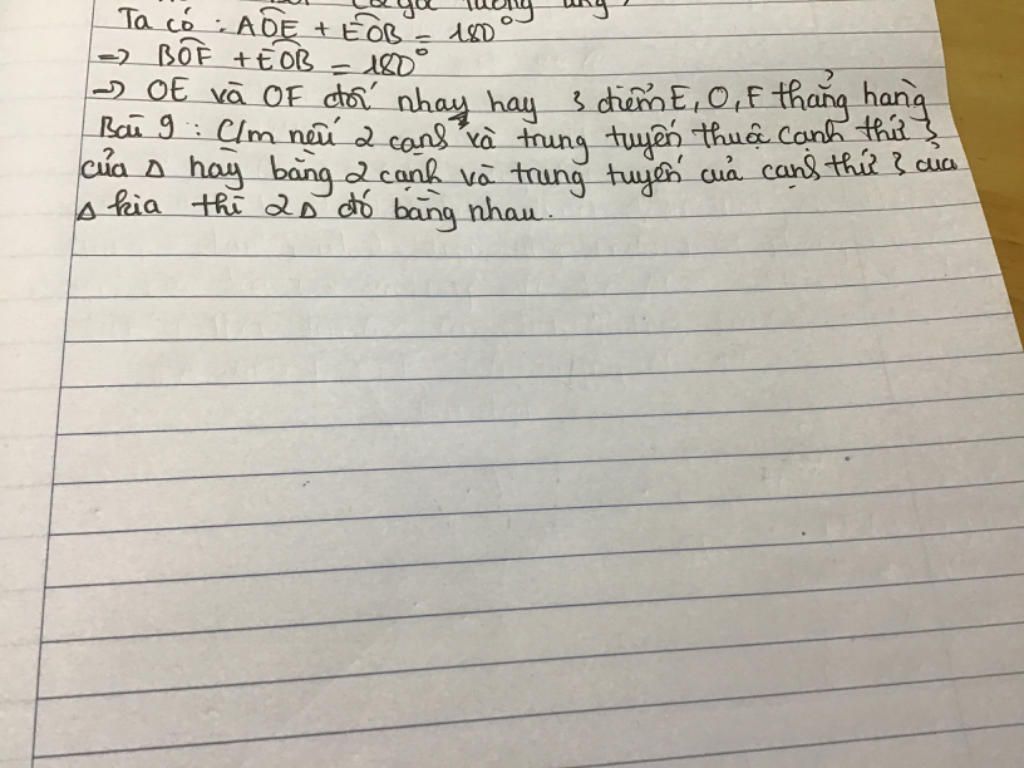 góc tương ứng)
Ta có : AÔE + EÔB = 180°
→ BÔF + EÔB = 180°
→ OE và OF đối nhau hay 3 điểm E, O, F thẳng hàng
Bài 9 : C/m nếu 2 cạnh và trung tuyến thuộc cạnh thứ 3
của Δ này bằng 2 cạnh và trung tuyến của cạnh thứ 3 của
Δ kia thì 2Δ đó bằng nhau.